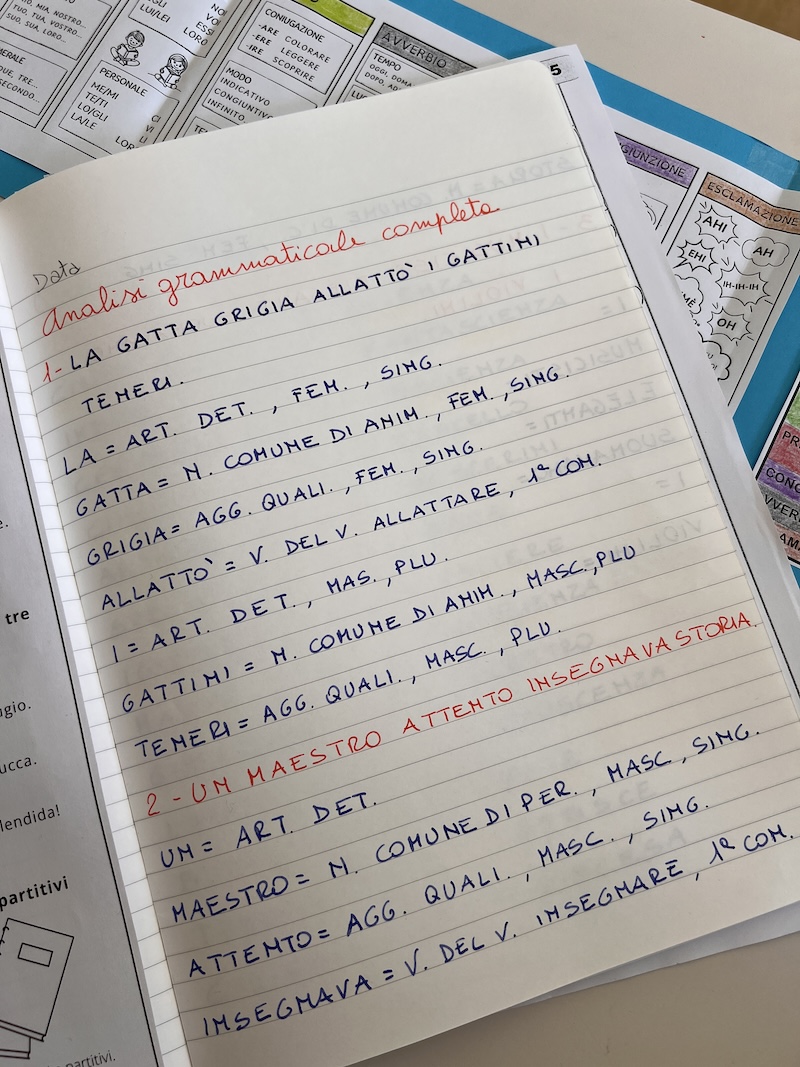 MIA, NOSTRO...
TUO, TUA, VOSTRO...
SUO, SUA, LORO...
LUI/LEI
LORO
PERSONALE
ME/MI
TE/TI
LO/GLI
LA/LE
CI
VI
LI
LOR
CONIUGAZIONE
-ARE COLORARE
-ERE LEGGERE
-IRE SCOPRIRE
MODO
INDICATIVO
CONGIUNTIVO
INFINITO
AVVERBIO
TEMPO
5
ESCLAMAZIONE
AHI
AH
EHI
IH-IH-IH
OH
Data
Analisi grammaticale completa
1- LA GATTA GRIGIA ALLATTÒ I GATTINI
TENERI.
LA = ART. DET. , FEM. , SING.
GATTA = N. COMUNE DI ANIM. , FEM. , SING.
GRIGIA = AGG. QUALI. , FEM. , SING.
ALLATTÒ = V. DEL V. ALLATTARE , 1ª COM.
I = ART. DET. , MAS. , PLU.
GATTINI = N. COMUNE DI ANIM. , MASC. , PLU
TENERI = AGG. QUALI. , MASC. , PLU.
2 - UN MAESTRO ATTENTO INSEGNAVA STORIA.
UN = ART. DET.
MAESTRO = N. COMUNE DI PER. , MASC , SING.
ATTENTO = AGG. QUALI. , MASC. , SING.
INSEGNAVA = V. DEL V. INSEGNARE , 1ª COM.
tre
partitivi
partitivi.